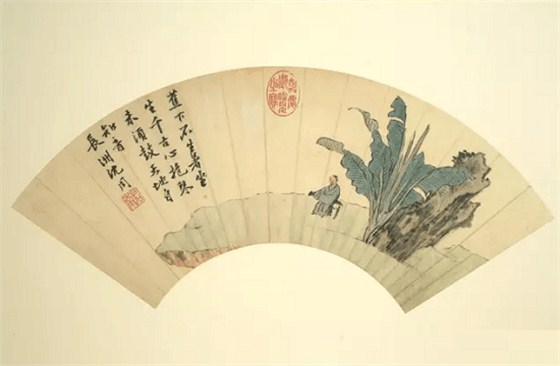 蕉下不生暑坐
生千古心抱琴
未須鼓天地自
知音
長洲沈周